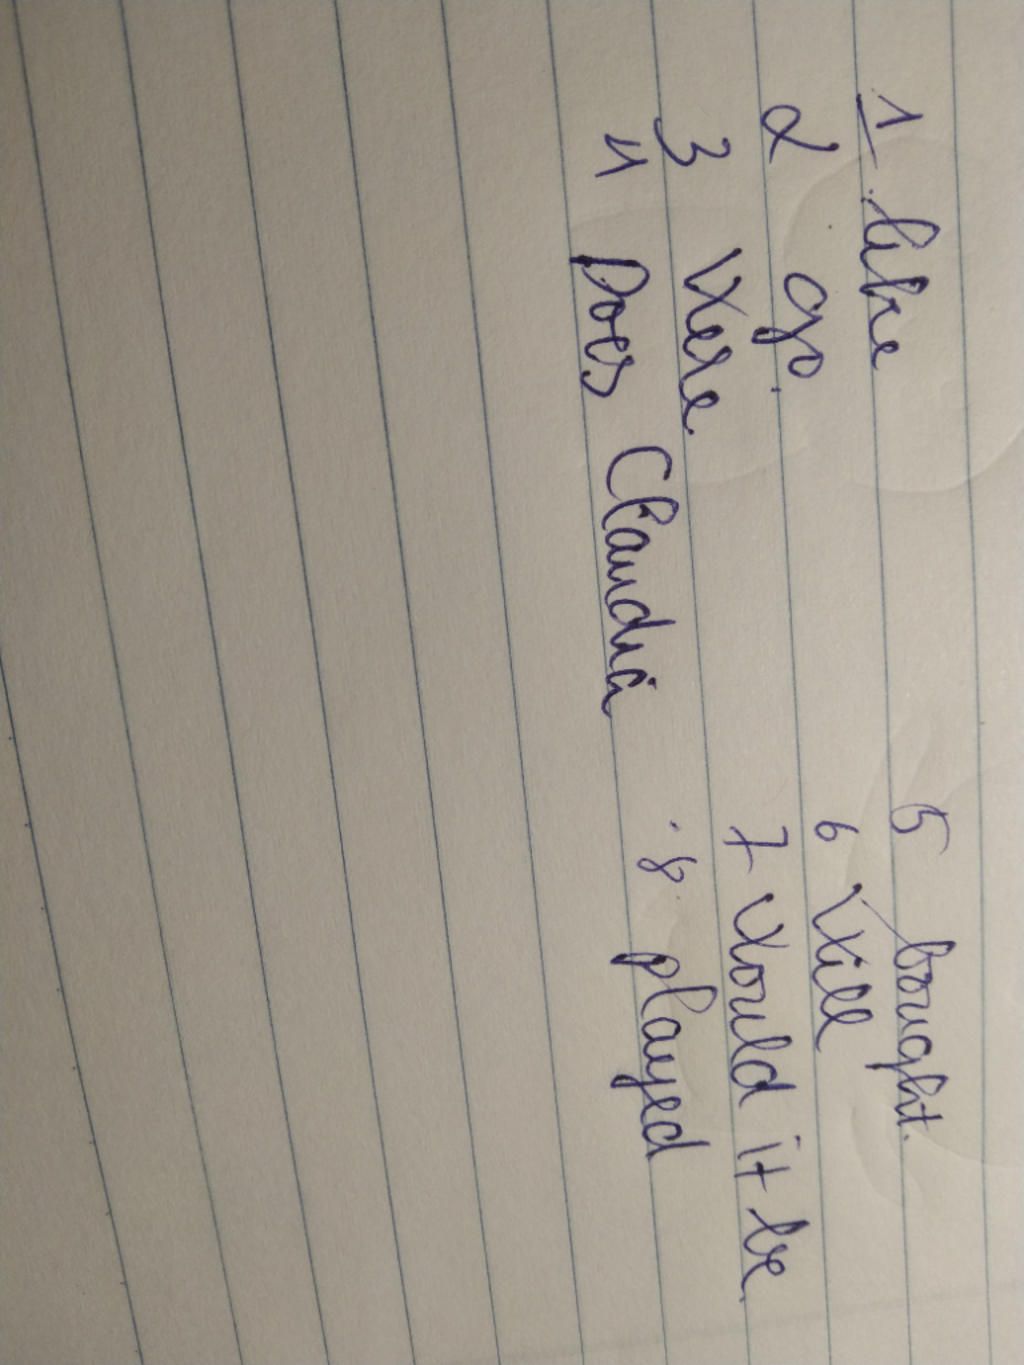 1 like
2 go.
3 Were.
4 Does Claudia
5 bought.
6 Will
7 Would it be.
8 played